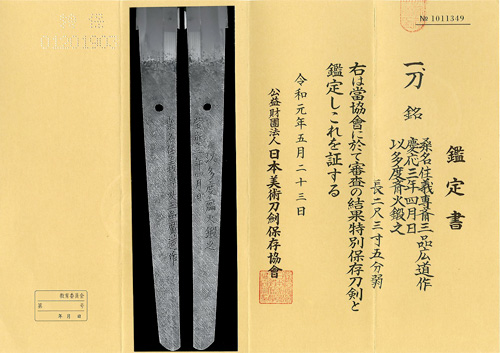 № 1011349
鑑定書
一刀 銘
桑名住義専斎三品広道作
慶応三年四月日
以多度斎火鍛之
長二尺三寸五分弱
右は當協會に於て審査の結果特別保存刀剣と
鑑定しこれを証する
令和元年五月二十三日
公益財團法人 日本美術刀剣保存協會
教育委員会
第 号
年 月 日